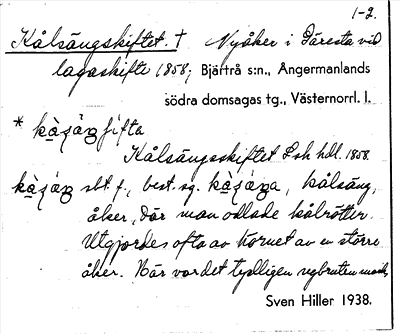 1-2.
Kålsängskiftet. † Nyåker i Päresta vid
lagaskifte 1858; Bjärtrå s:n., Ångermanlands
södra domsagas tg., Västernorrl. l.
*
Kålsängsskiftet Lsk hdl. 1858.
sbt. f., best. sg. kålsäng,
åker, där man odlade kålrötter.
Utgjordes ofta av hörnet av en större
åker. Här var det tydligen nybruten mark.
Sven Hiller 1938.